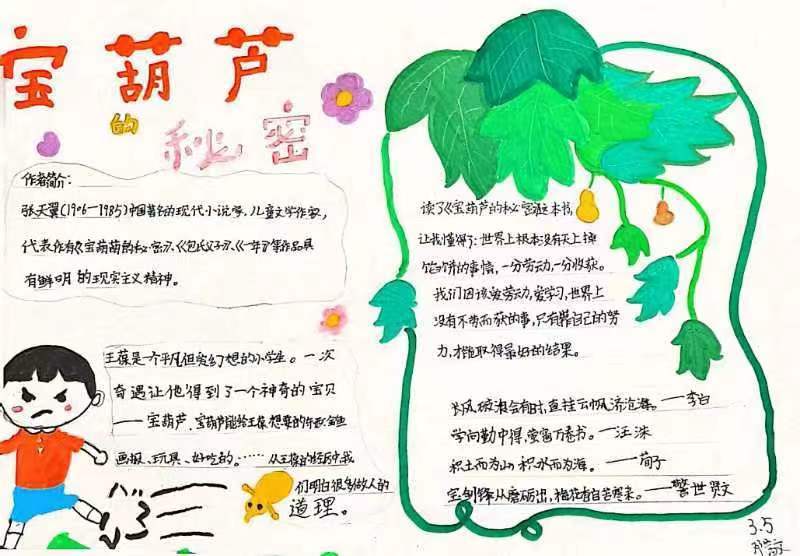 宝葫芦
的
秘密
作者简介:
张天翼(1906—1985)中国著名的现代小说学、儿童文学作家,
代表作有《宝葫芦的秘密》、《包氏父子》、《一年》等作品具
有鲜明的现实主义精神。
王葆是一个平凡但爱幻想的小学生。一次
奇遇让他得到了一个神奇的宝贝
——宝葫芦、宝葫芦能给王葆想要的
画报、玩具、好吃的。……从王葆的经历中我
们明白很多做人的
道理。
读了《宝葫芦的秘密》这本书,
让我懂得了:世界上根本没有天上掉
馅饼的事情,一分劳动,一分收获。
我们因该爱劳动,爱学习,世界上
没有不劳而获的事,只有靠自己的努
力,才能取得最好的结果。
长风破浪会有时,直挂云帆济沧海。——李白
学向勤中得,萤窗万卷书。——汪洙
积土而为山,积水而为海。——荀子
宝剑锋从磨砺出,梅花香自苦寒来。——警世贤文
3.5